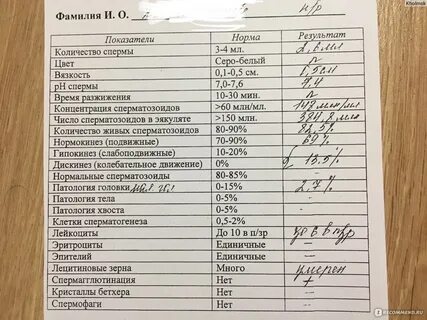 Kholmsk
Фамилия И. О.
Показатели Норма Результат
Количество спермы 3-4 мл. 2,6 мл
Цвет Серо-белый n
Вязкость 0,1-0,5 см. 1,5см
pH спермы 7,0-7,6 7.4
Время разжижения 10-30 мин. n
Концентрация сперматозоидов >60 млн/мл. 148 млн/мл
Число сперматозоидов в эякуляте >150 млн. 384,8 млн
Количество живых сперматозоидов 80-90% 82,5%
Нормокинез (подвижные) 70-90% 69%
Гипокинез (слабоподвижные) 10-20%
Дискинез (колебательное движение) 0% 13.5%
Нормальные сперматозоиды 80-85% —
Патология головки 0-15% 2,7%
Патология тела 0-5% —
Патология хвоста 0-5% —
Клетки сперматогенеза 0,5-2%
Лейкоциты До 10 в п/зр до 6 в п/зр
Эритроциты Единичные —
Эпителий Единичные —
Лецитиновые зерна Много умерен
Спермаглютинация Нет +
Кристаллы бетхера Нет —
Спермофаги Нет —
IRECOMMEND.RU